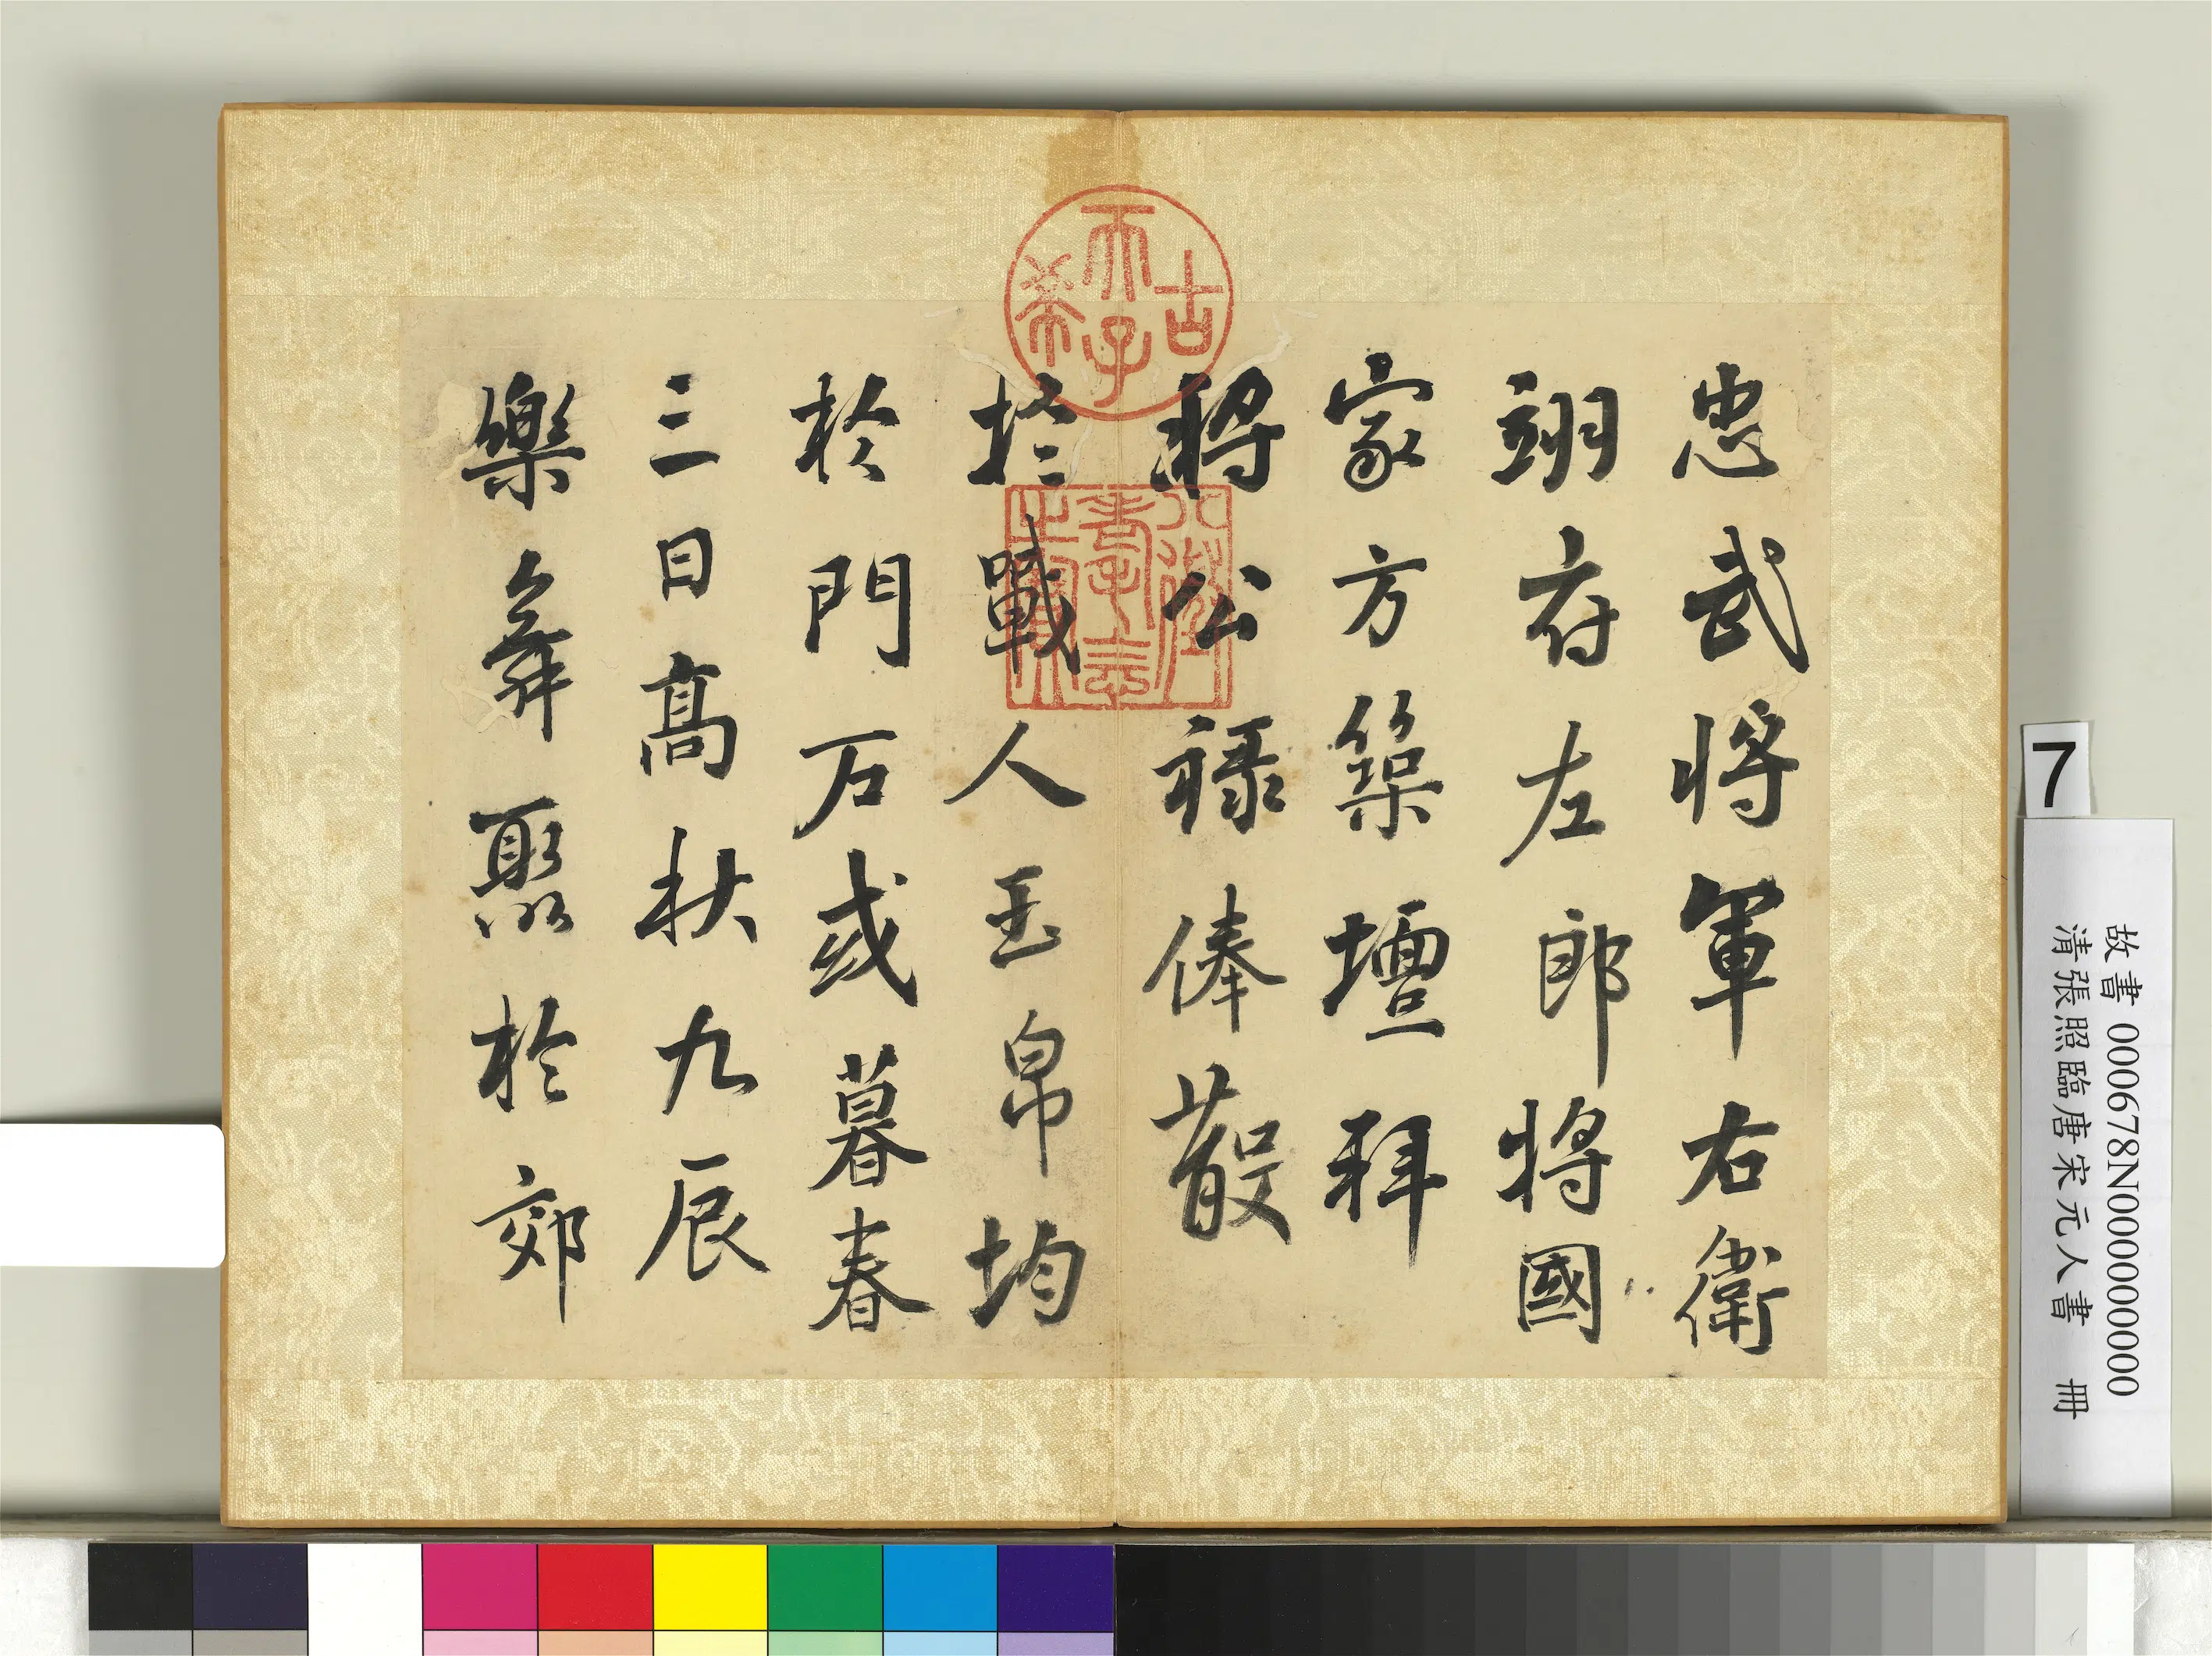 忠武將軍右衛
翊府左郎將國
家方築壇拜
將公祿俸散
於戰人玉帛均
於門石或暮春
三日高秋九辰
樂彝聚於郊
古希天子
八徵耄念之寶
7
故書 000678N000000000
清張照臨唐宋元人書 冊